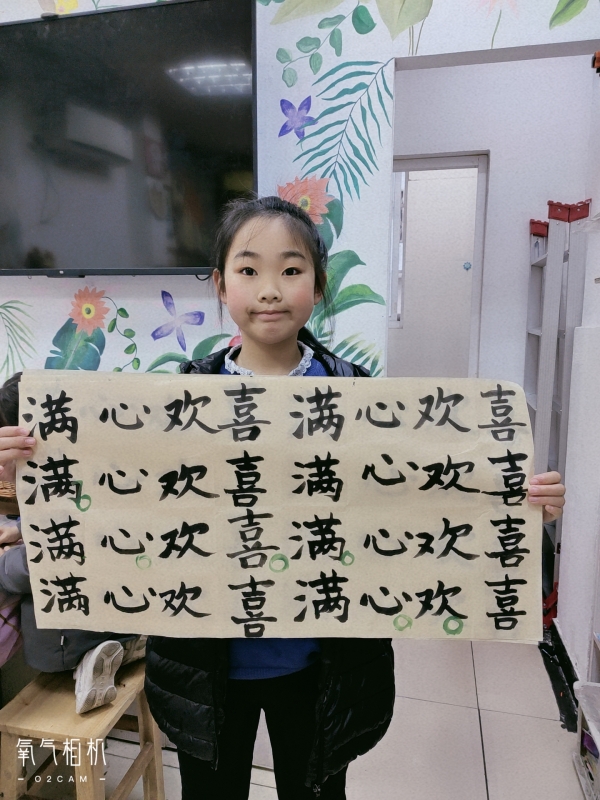 满心欢喜满心欢喜
满心欢喜满心欢喜
满心欢喜满心欢喜
满心欢喜满心欢喜
氧气相机
O2CAM